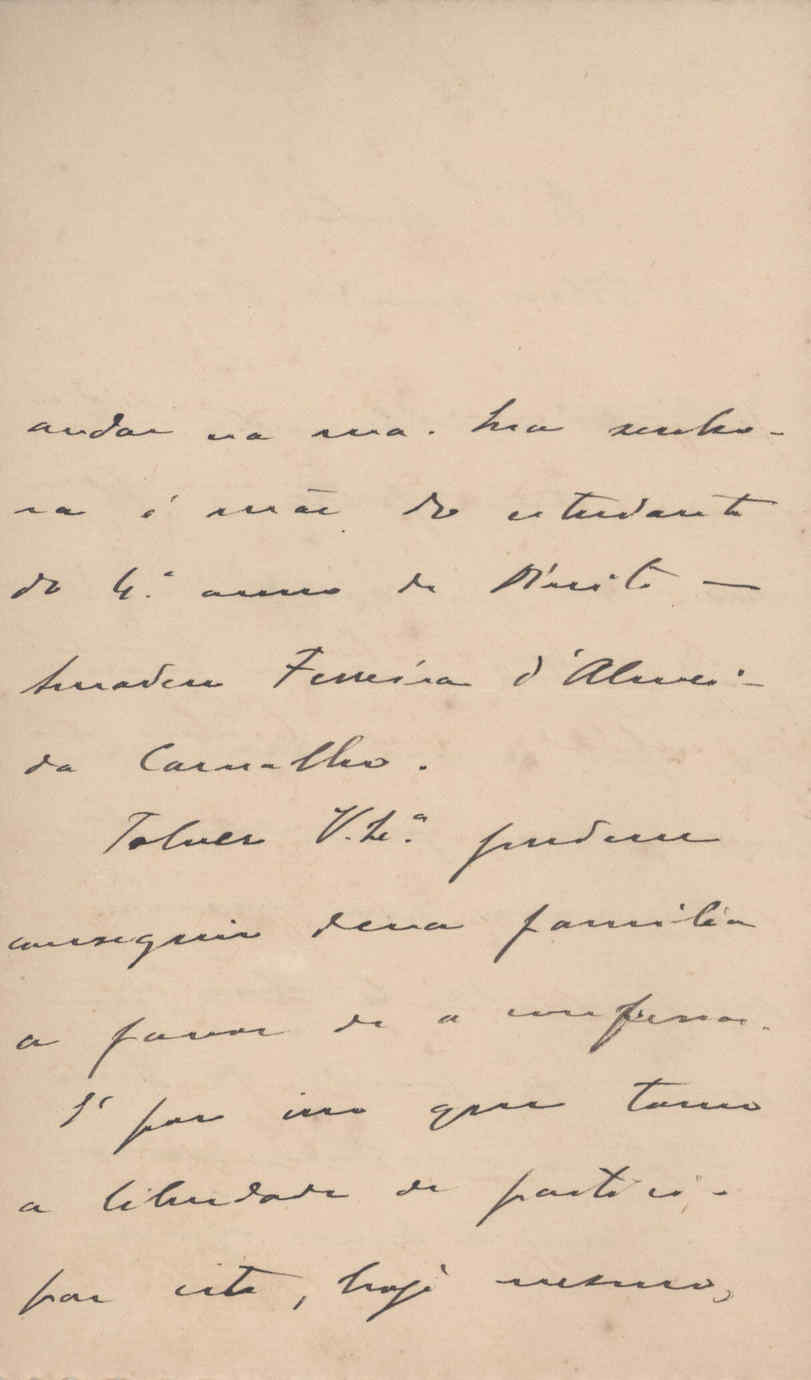 andar na rua. Essa senho-
ra é mãe do estudante
do 4.º anno de Direito —
Amadeu Ferreira d'Almei-
da Carvalho.
Talvez V. Ex.ª pudesse
conseguir dessa familia
o favor de a confessar.
É por isso que tomo
a liberdade de partici-
par isto, hoje mesmo,